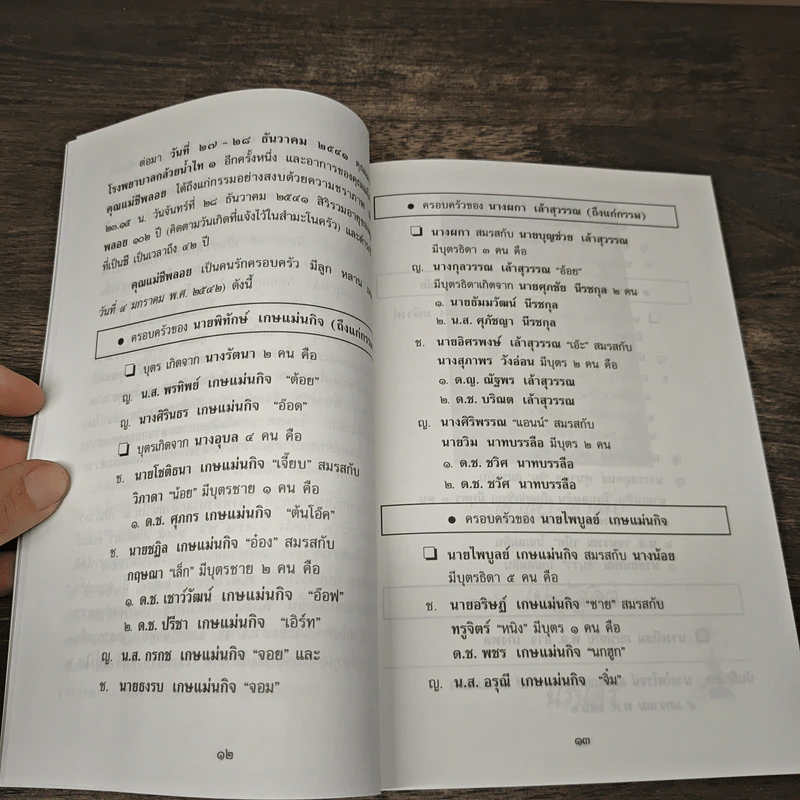 ต่อมา วันที่ ๒๗ - ๒๘ ธันวาคม ๒๕๔๑
โรงพยาบาลกล้วยน้ำไท ๑ อีกครั้งหนึ่ง และอาการของคุณแม่ชี
คุณแม่ชีพลอย ได้ถึงแก่กรรมอย่างสงบด้วยความชราภาพ
๒๓.๑๕ น. วันจันทร์ที่ ๒๘ ธันวาคม ๒๕๔๑ สิริรวมอายุของ
พลอย ๑๐๒ ปี (คิดตามวันเกิดที่แจ้งไว้ในสำมะโนครัว) และดำรง
ที่เป็นชี เป็นเวลาถึง ๔๒ ปี
คุณแม่ชีพลอย เป็นคนรักครอบครัว มีลูก หลาน
วันที่ ๔ มกราคม พ.ศ. ๒๕๔๒) ดังนี้
● ครอบครัวของ นายพิทักษ์ เกษแม่นกิจ (ถึงแก่กรรม)
❑ บุตร เกิดจาก นางรัตนา ๒ คน คือ
ญ. น.ส. พรทิพย์ เกษแม่นกิจ “ต้อย”
ญ. นางศิรินธร เกษแม่นกิจ “อ๊อด”
❑ บุตรเกิดจาก นางอุบล ๔ คน คือ
ช. นายโชติธนา เกษแม่นกิจ “เจี๊ยบ” สมรสกับ
วิภาดา “น้อย” มีบุตรชาย ๑ คน คือ
๑. ด.ช. ศุภกร เกษแม่นกิจ “ต้นโอ๊ค”
ช. นายชฎิล เกษแม่นกิจ “อ๋อง” สมรสกับ
กฤษณา “เล็ก” มีบุตรชาย ๒ คน คือ
๑. ด.ช. เชาว์วัฒน์ เกษแม่นกิจ “อ๊อฟ”
๒. ด.ช. ปรีชา เกษแม่นกิจ “เอิร์ท”
ญ. น.ส. กรกช เกษแม่นกิจ “จอย” และ
ช. นายธงรบ เกษแม่นกิจ “จอม”
๑๒
● ครอบครัวของ นางผกา เล้าสุวรรณ (ถึงแก่กรรม)
❑ นางผกา สมรสกับ นายบุญช่วย เล้าสุวรรณ
มีบุตรธิดา ๓ คน คือ
ญ. นางกุลวรรณ เล้าสุวรรณ “อ้อย”
มีบุตรธิดาเกิดจาก นายศุภชัย นีรชกุล ๒ คน
๑. นายธัมมวัฒน์ นีรชกุล
๒. น.ส. ศุภัชญา นีรชกุล
ช. นายอิศรพงษ์ เล้าสุวรรณ “เอ๊ะ” สมรสกับ
นางสุภาพร วังอ่อน มีบุตร ๒ คน คือ
๑. ด.ญ. ณัฐพร เล้าสุวรรณ
๒. ด.ช. บริณต เล้าสุวรรณ
ญ. นางศิริพรรณ “แอนน์” สมรสกับ
นายวิม นาทบรรลือ มีบุตร ๒ คน
๑. ด.ช. ชวิศ นาทบรรลือ
๒. ด.ช. ชวัศ นาทบรรลือ
● ครอบครัวของ นายไพบูลย์ เกษแม่นกิจ
❑ นายไพบูลย์ เกษแม่นกิจ สมรสกับ นางน้อย
มีบุตรธิดา ๕ คน คือ
ช. นายอริษฏ์ เกษแม่นกิจ “ชาย” สมรสกับ
ทรูจิตร์ “หนิง” มีบุตร ๑ คน คือ
ด.ช. พชร เกษแม่นกิจ “นกฮูก”
ญ. น.ส. อรุณี เกษแม่นกิจ “จิ๋ม”
๑๓